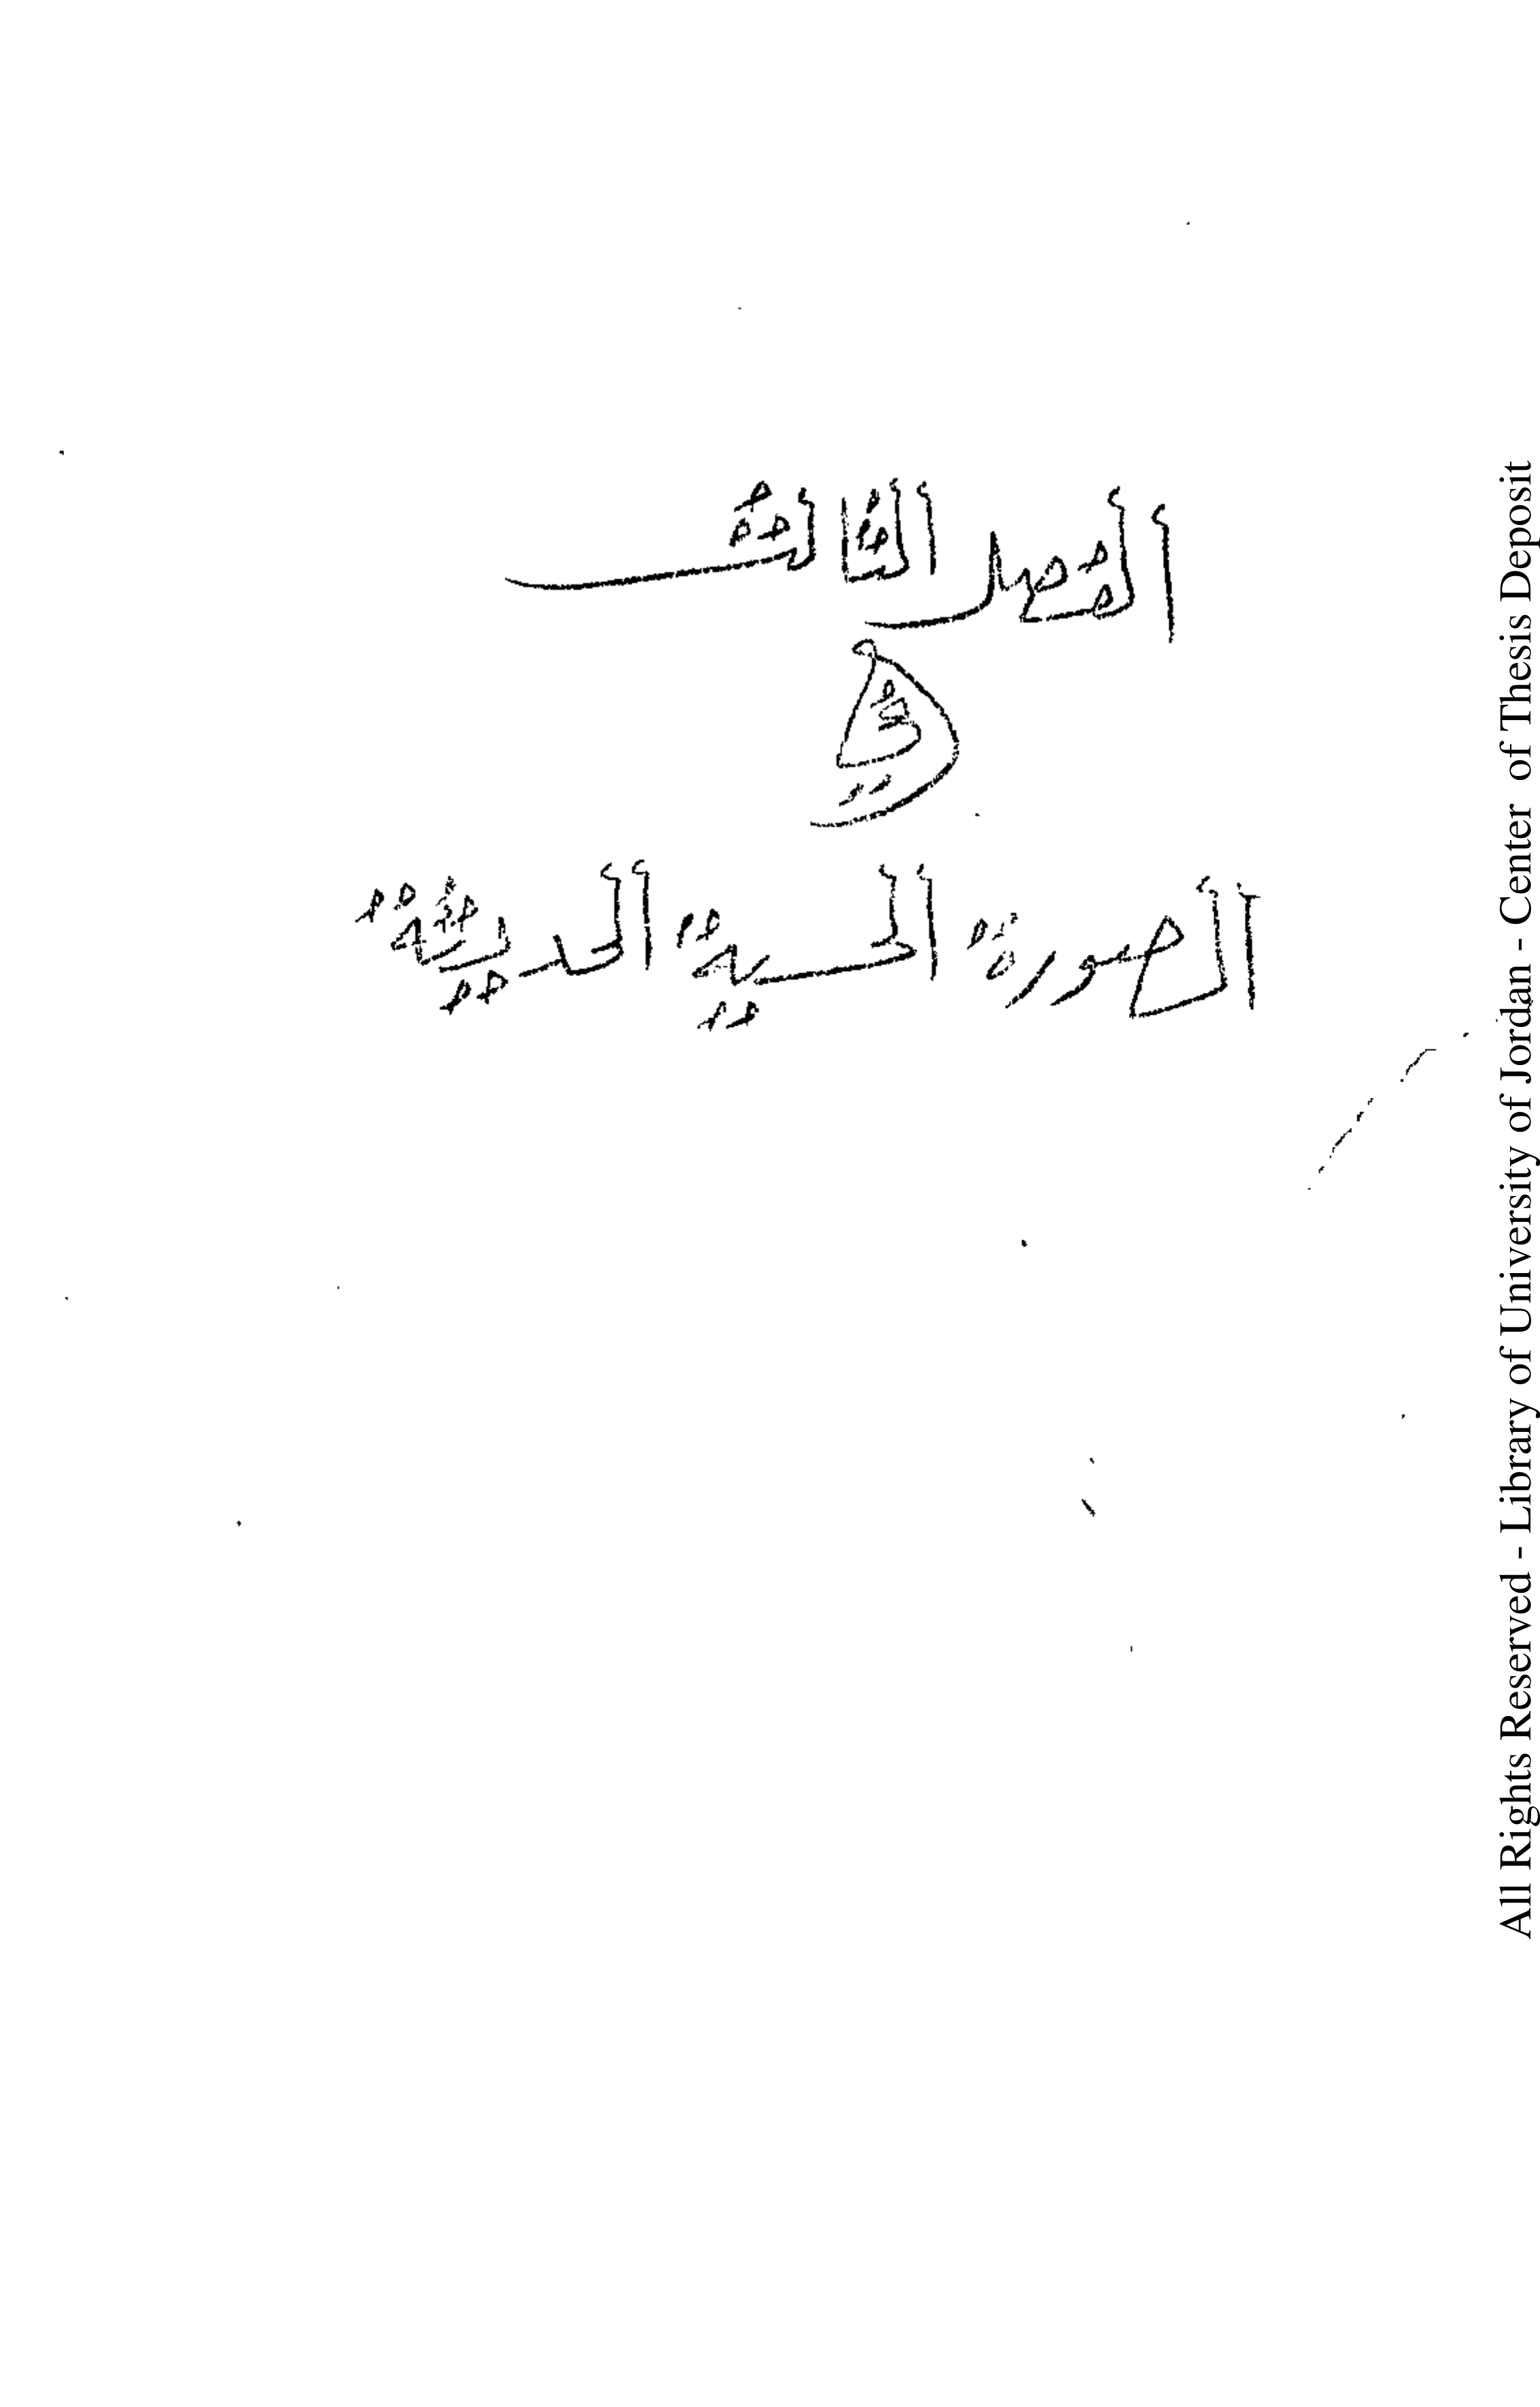 الفصل الثالث
الصورة الحسية الحديثة
All Rights Reserved - Library of University of Jordan - Center of Thesis Deposit